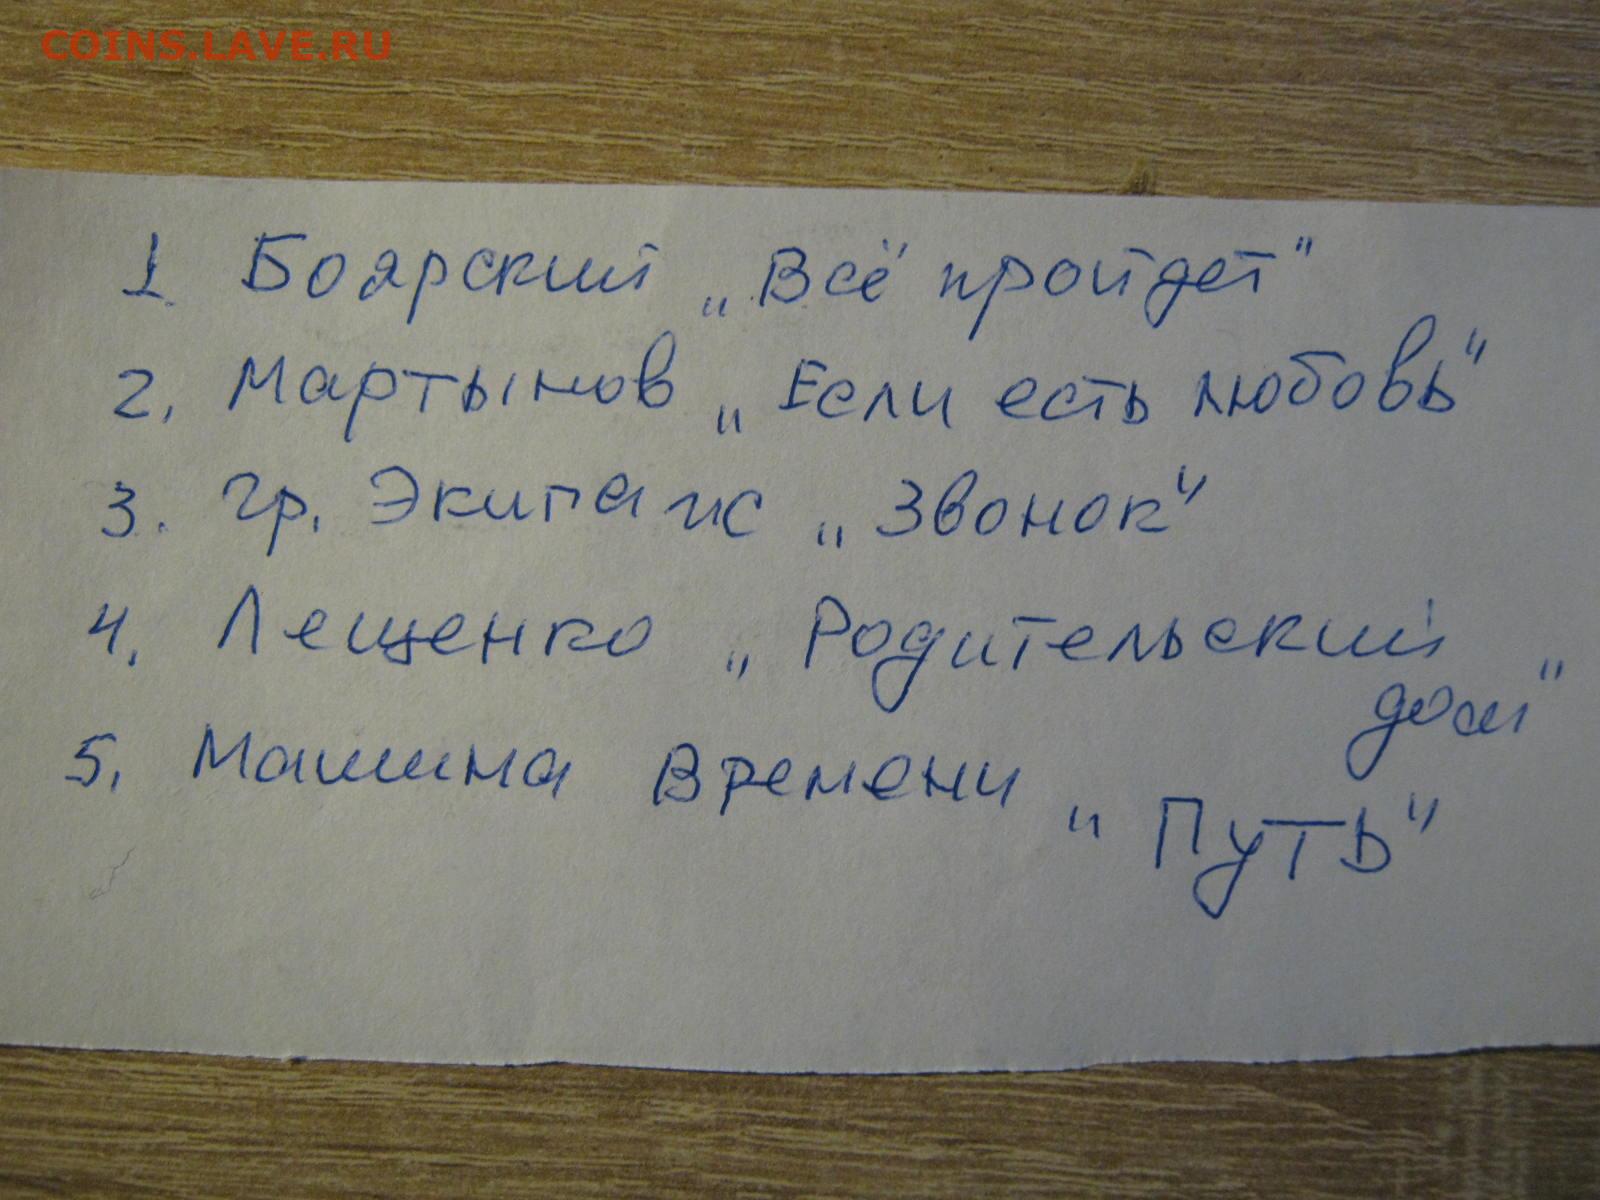 COINS.LAVE.RU
1. Боярский „Всё пройдет"
2. Мартынов „Если есть любовь"
3. гр. Экипаж „Звонок"
4. Лещенко „Родительский
дом"
5. Машина Времени "Путь"